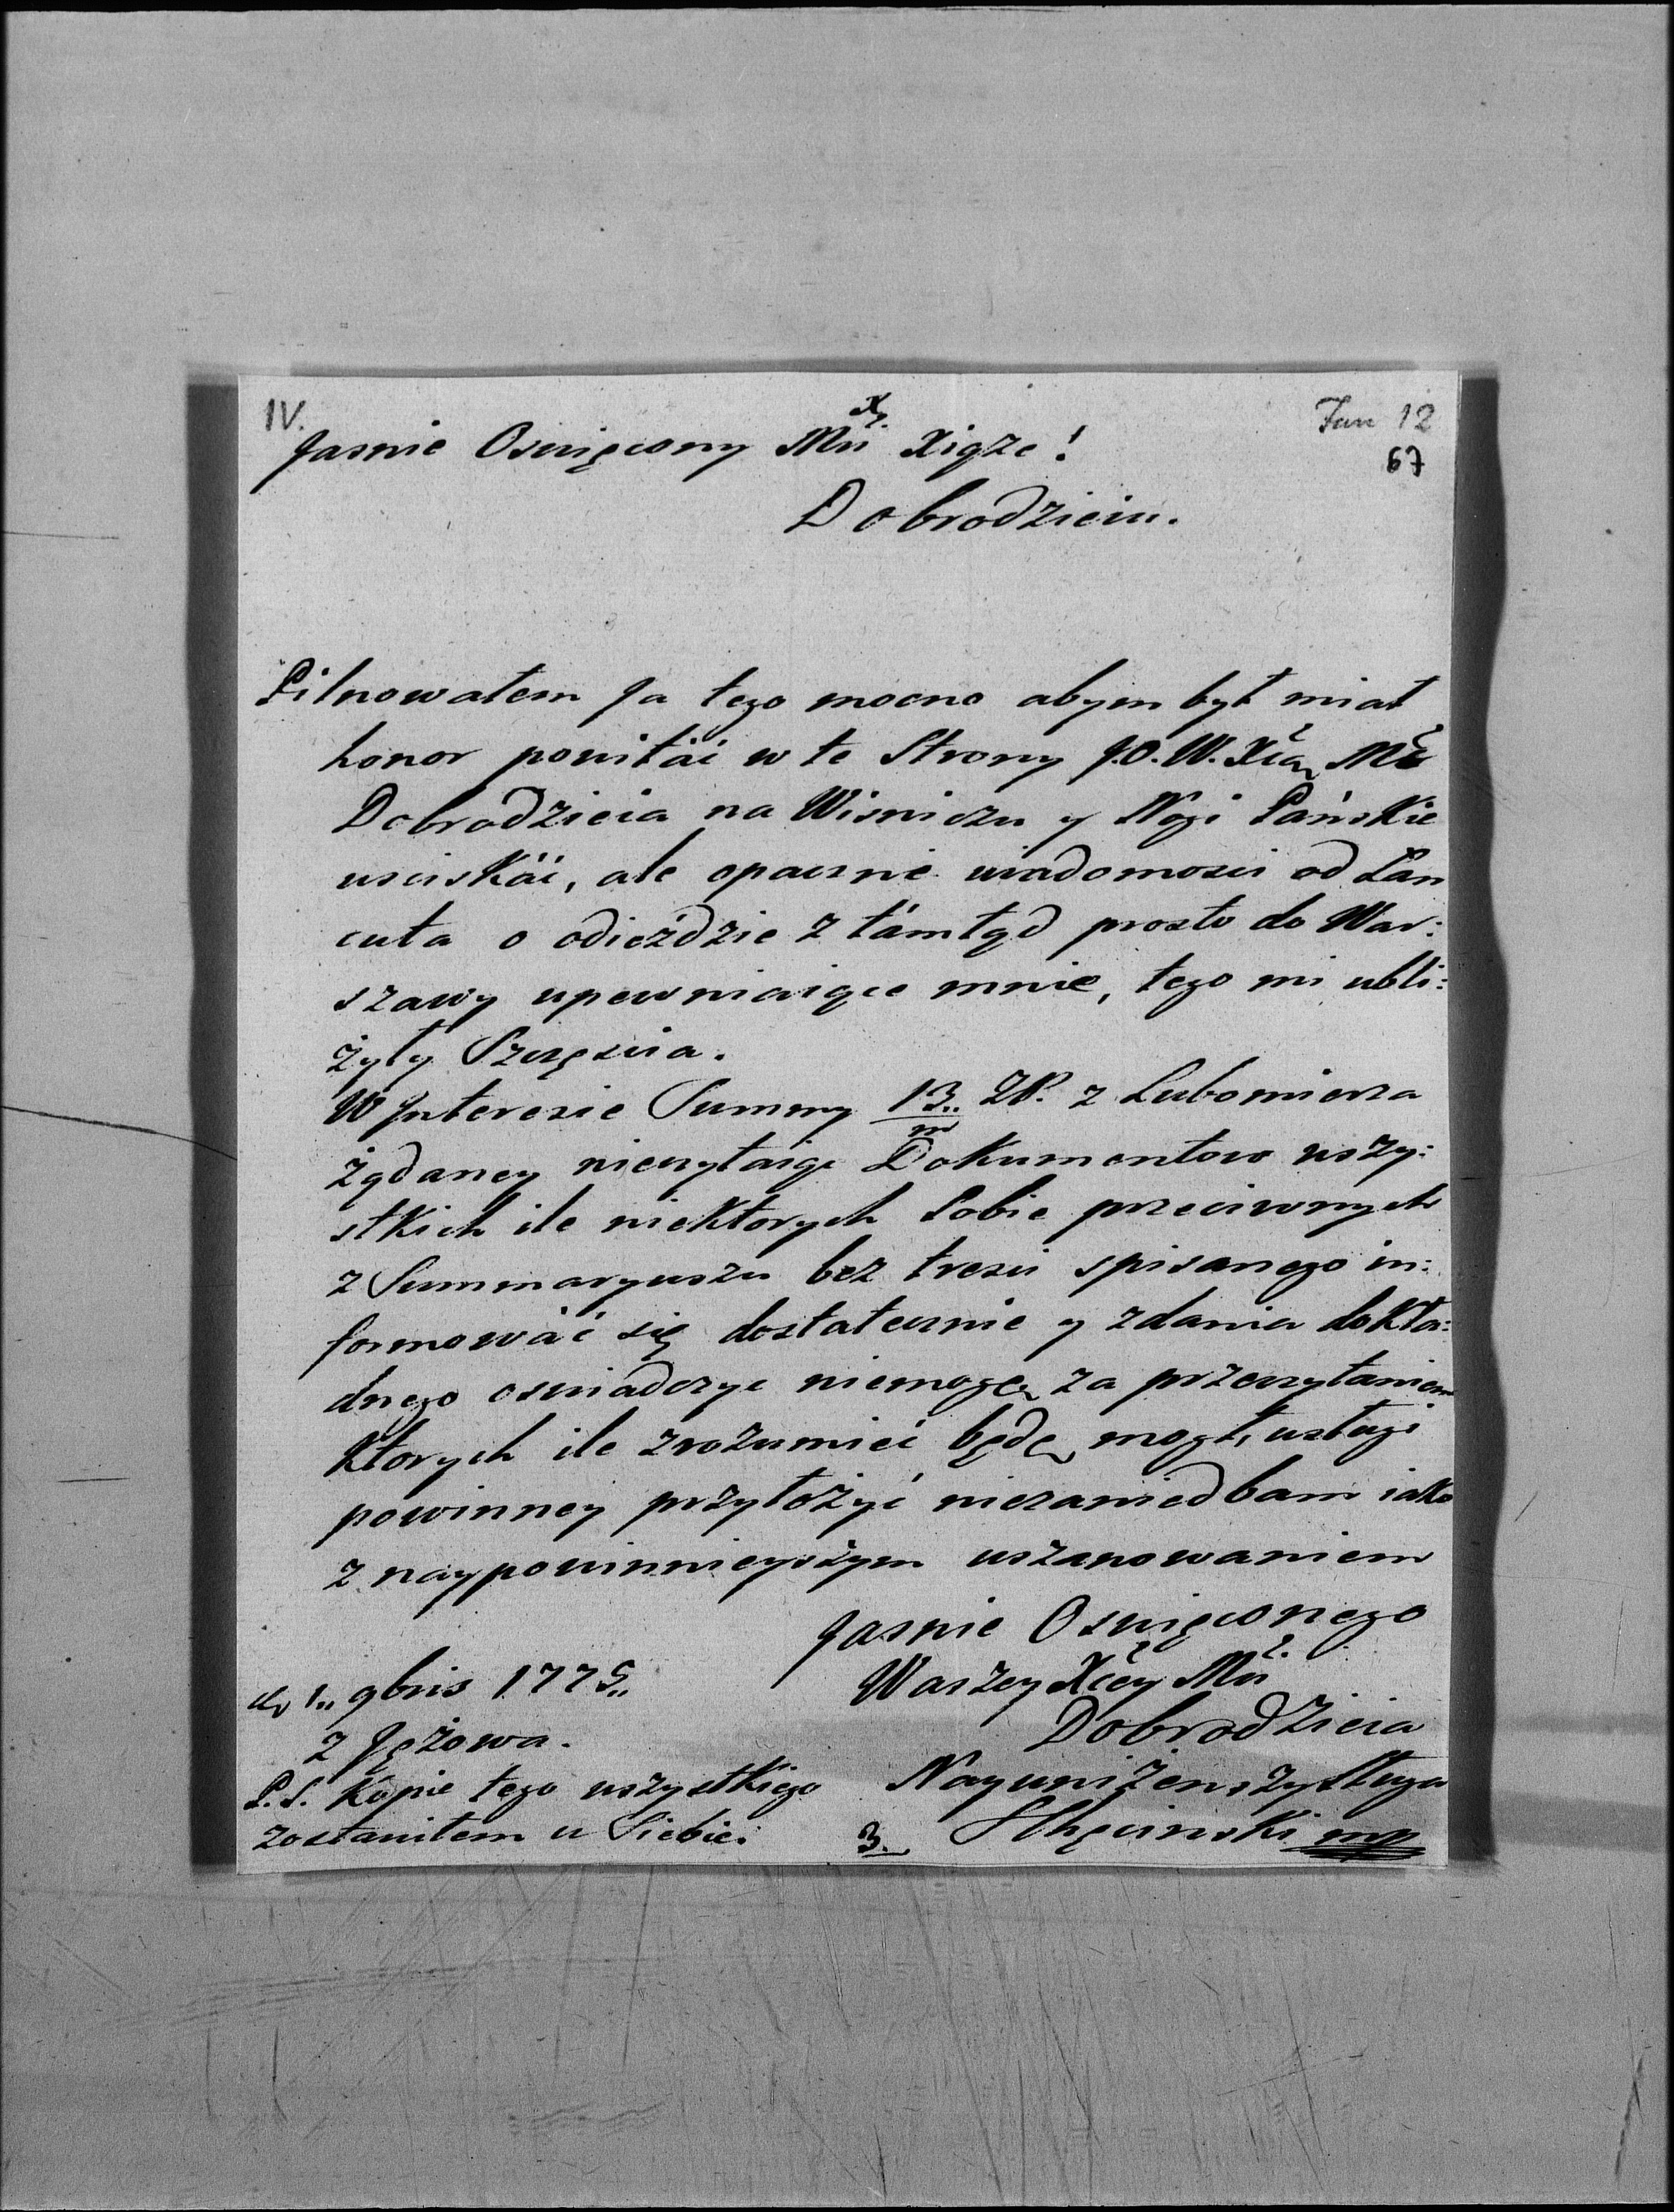 IV.
Jasnie Oswięcony Mći Xiąze!
Dobrodzieiu.
Jan 12
67
Pilnowałem Ja tego mocno abym był miał
honor powitać w te Strony J.O.W.Xcia Mći
Dobrodzieia na Wisniczu y Nogi Pańskie
usciskać, ale opaczne wiadomosci od Łan
cuta o odieździe z támtąd prosto do War:
szawy upewniaiące mnie, tego mi ubli:
żyły Szczęscia.
W Jnteresie Summy 13.. ZP. z Lubomierza
m
żądaney nieczytaiąc Dokumentow wszy:
stkich ile niektorych Sobie przeciwnych
z Summaryuszu bez tresci spisanego in:
formowáć się dostatecznie y zdania dokła:
dnego oswiadczyc niemogę za przeczytaniem
ktorych ile zrozumieć będę mogł, usługi
powinney przyłożyć niezaniedbam iako
z naypowinnieyszym uszanowaniem
Jasnie Oswięconego
Waszey Xcey Mći
Dobrodzieia
Nayuniżenszy Sługa
SChęcinski mp
d. 1.. 9bris 1775..
z Jeżowa.
P.S. Kopie tego wszystkiego
zostawiłem u Siebie.
3.